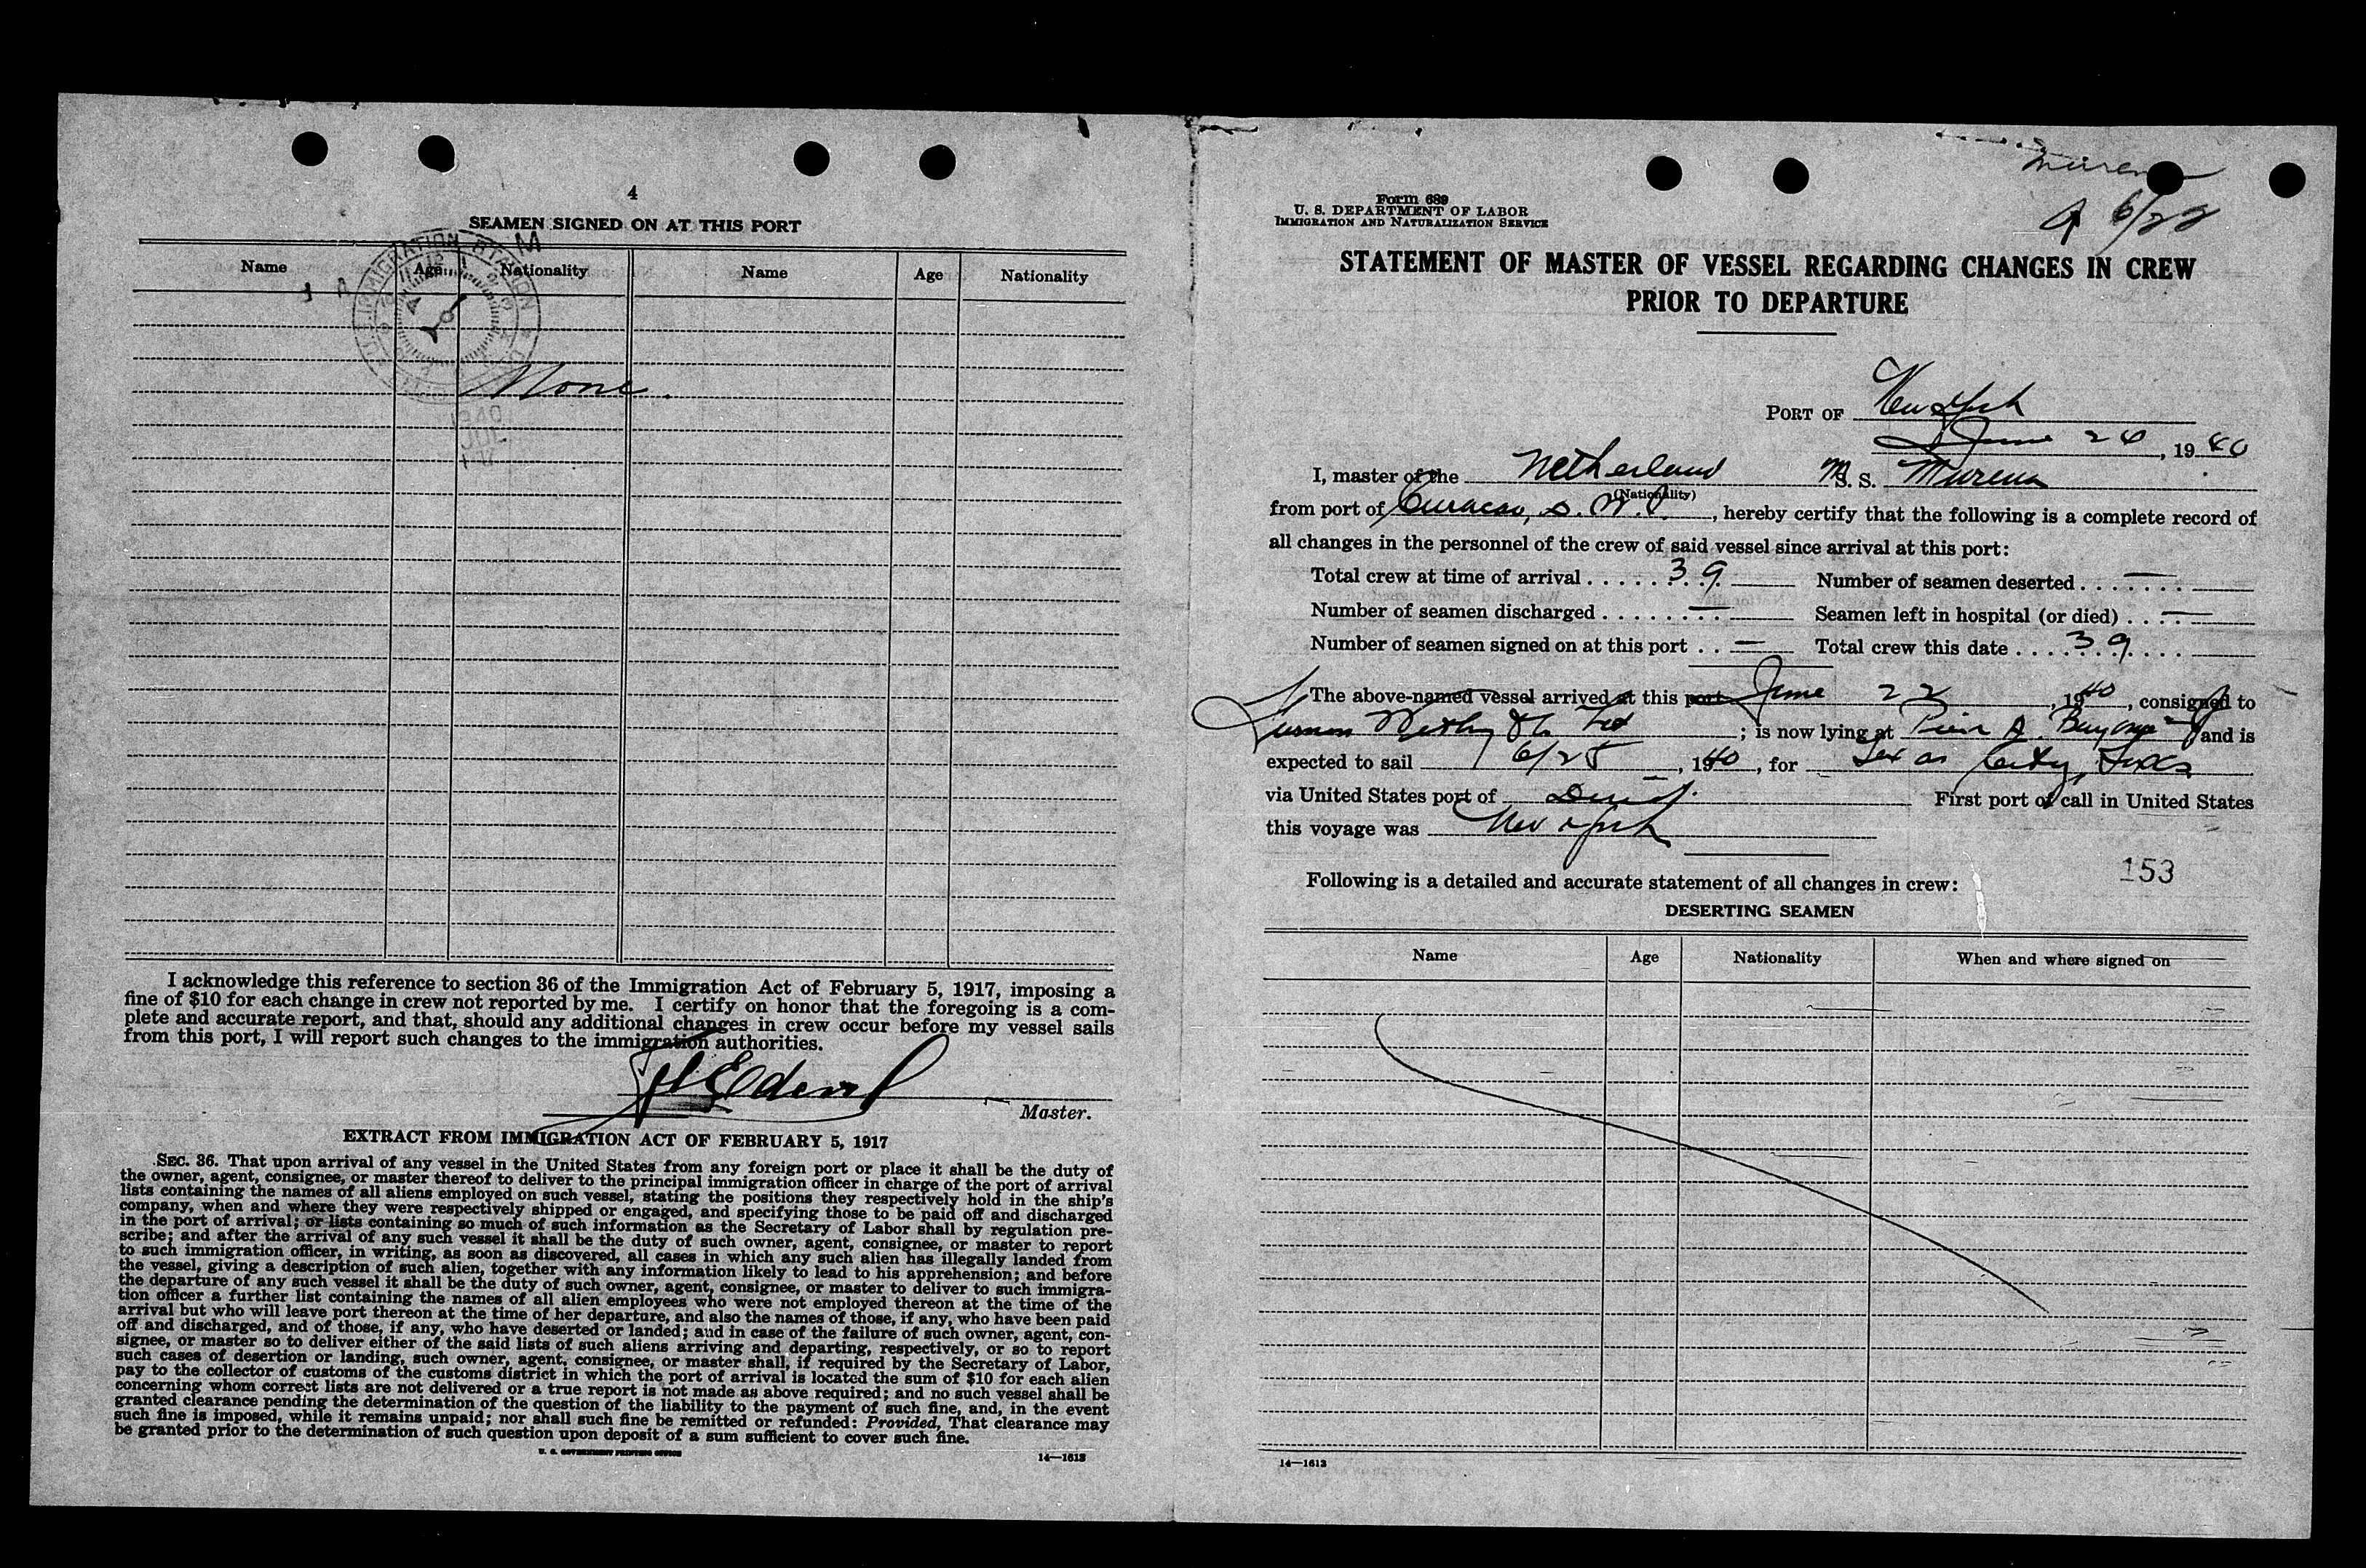 4
SEAMEN SIGNED ON AT THIS PORT
Name Age Nationality Name Age Nationality
IMMIGRATION STATION
None.
1940
JUL
I acknowledge this reference to section 36 of the Immigration Act of February 5, 1917, imposing a
fine of $10 for each change in crew not reported by me. I certify on honor that the foregoing is a com-
plete and accurate report, and that, should any additional changes in crew occur before my vessel sails
from this port, I will report such changes to the immigration authorities.
Master.
EXTRACT FROM IMMIGRATION ACT OF FEBRUARY 5, 1917
SEC. 36. That upon arrival of any vessel in the United States from any foreign port or place it shall be the duty of
the owner, agent, consignee, or master thereof to deliver to the principal immigration officer in charge of the port of arrival
lists containing the names of all aliens employed on such vessel, stating the positions they respectively hold in the ship's
company, when and where they were respectively shipped or engaged, and specifying those to be paid off and discharged
in the port of arrival; or lists containing so much of such information as the Secretary of Labor shall by regulation pre-
scribe; and after the arrival of any such vessel it shall be the duty of such owner, agent, consignee, or master to report
to such immigration officer, in writing, as soon as discovered, all cases in which any such alien has illegally landed from
the vessel, giving a description of such alien, together with any information likely to lead to his apprehension; and before
the departure of any such vessel it shall be the duty of such owner, agent, consignee, or master to deliver to such immigra-
tion officer a further list containing the names of all alien employees who were not employed thereon at the time of the
arrival but who will leave port thereon at the time of her departure, and also the names of those, if any, who have been paid
off and discharged, and of those, if any, who have deserted or landed; and in case of the failure of such owner, agent, con-
signee, or master so to deliver either of the said lists of such aliens arriving and departing, respectively, or so to report
such cases of desertion or landing, such owner, agent, consignee, or master shall, if required by the Secretary of Labor,
pay to the collector of customs of the customs district in which the port of arrival is located the sum of $10 for each alien
concerning whom correct lists are not delivered or a true report is not made as above required; and no such vessel shall be
granted clearance pending the determination of the question of the liability to the payment of such fine, and, in the event
such fine is imposed, while it remains unpaid; nor shall such fine be remitted or refunded: Provided, That clearance may
be granted prior to the determination of such question upon deposit of a sum sufficient to cover such fine.
U. S. GOVERNMENT PRINTING OFFICE 14—1613
Murena
A 6/22
Form 689
U. S. DEPARTMENT OF LABOR
IMMIGRATION AND NATURALIZATION SERVICE
STATEMENT OF MASTER OF VESSEL REGARDING CHANGES IN CREW
PRIOR TO DEPARTURE
PORT OF New York
June 24, 1940
I, master of the Netherland M. S. Murena
(Nationality)
from port of Curacao, D. W. I., hereby certify that the following is a complete record of
all changes in the personnel of the crew of said vessel since arrival at this port:
Total crew at time of arrival 39 Number of seamen deserted —
Number of seamen discharged — Seamen left in hospital (or died) —
Number of seamen signed on at this port — Total crew this date 39
The above-named vessel arrived at this port June 22, 1940, consigned to
; is now lying at Pier and is
expected to sail 6/25, 1940, for Texas City, Texas
via United States port of First port of call in United States
this voyage was New York
153
Following is a detailed and accurate statement of all changes in crew:
DESERTING SEAMEN
Name Age Nationality When and where signed on
14—1613